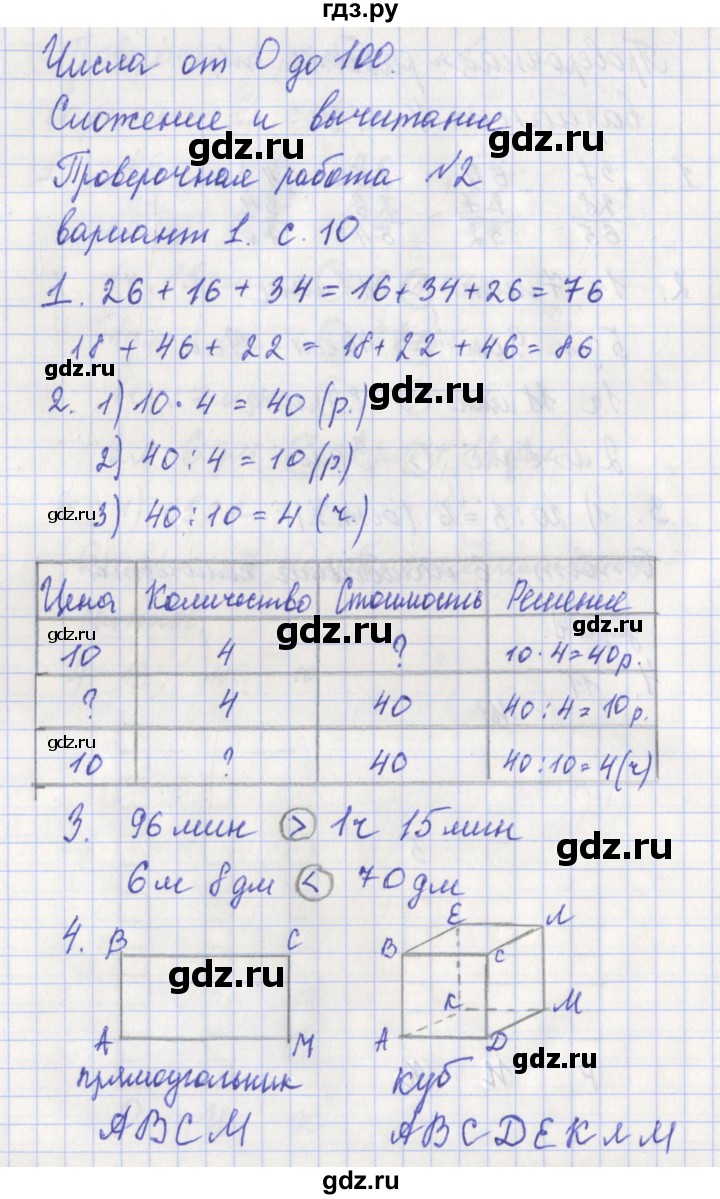 гдз.ру
Числа от 0 до 100.
Сложение и вычитание
gdz.ru gdz.ru
Проверочная работа №2
вариант 1. с. 10
1. 26 + 16 + 34 = 16 + 34 + 26 = 76
18 + 46 + 22 = 18 + 22 + 46 = 86
gdz.ru gdz.ru
2. 1) 10 · 4 = 40 (р.)
2) 40 : 4 = 10 (р.)
gdz.ru
3) 40 : 10 = 4 (ч.)
Цена Количество Стоимость Решение
gdz.ru gdz.ru
10 4 ? 10 · 4 = 40 р.
? 4 40 40 : 4 = 10 р.
gdz.ru
10 ? 40 40 : 10 = 4 (ч)
3. 96 мин > 1 ч 15 мин
gdz.ru
6 м 8 дм < 70 дм
4. B C E Л B C
gdz.ru
A М K М A D
прямоугольник куб
gdz.ru
АВСМ АВСDEКЛМ
gdz.ru